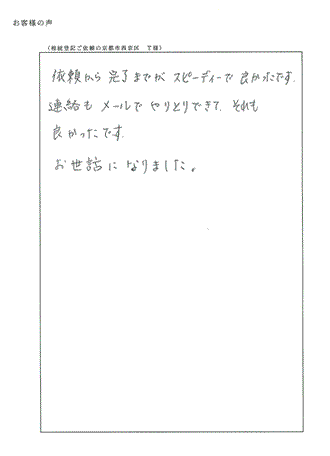 お客様の声
(相続登記ご依頼の京都市西京区 T様)
依頼から完了までがスピーディーで良かったです.
連絡もメールでやりとりできて、それも
良かったです.
お世話になりました。